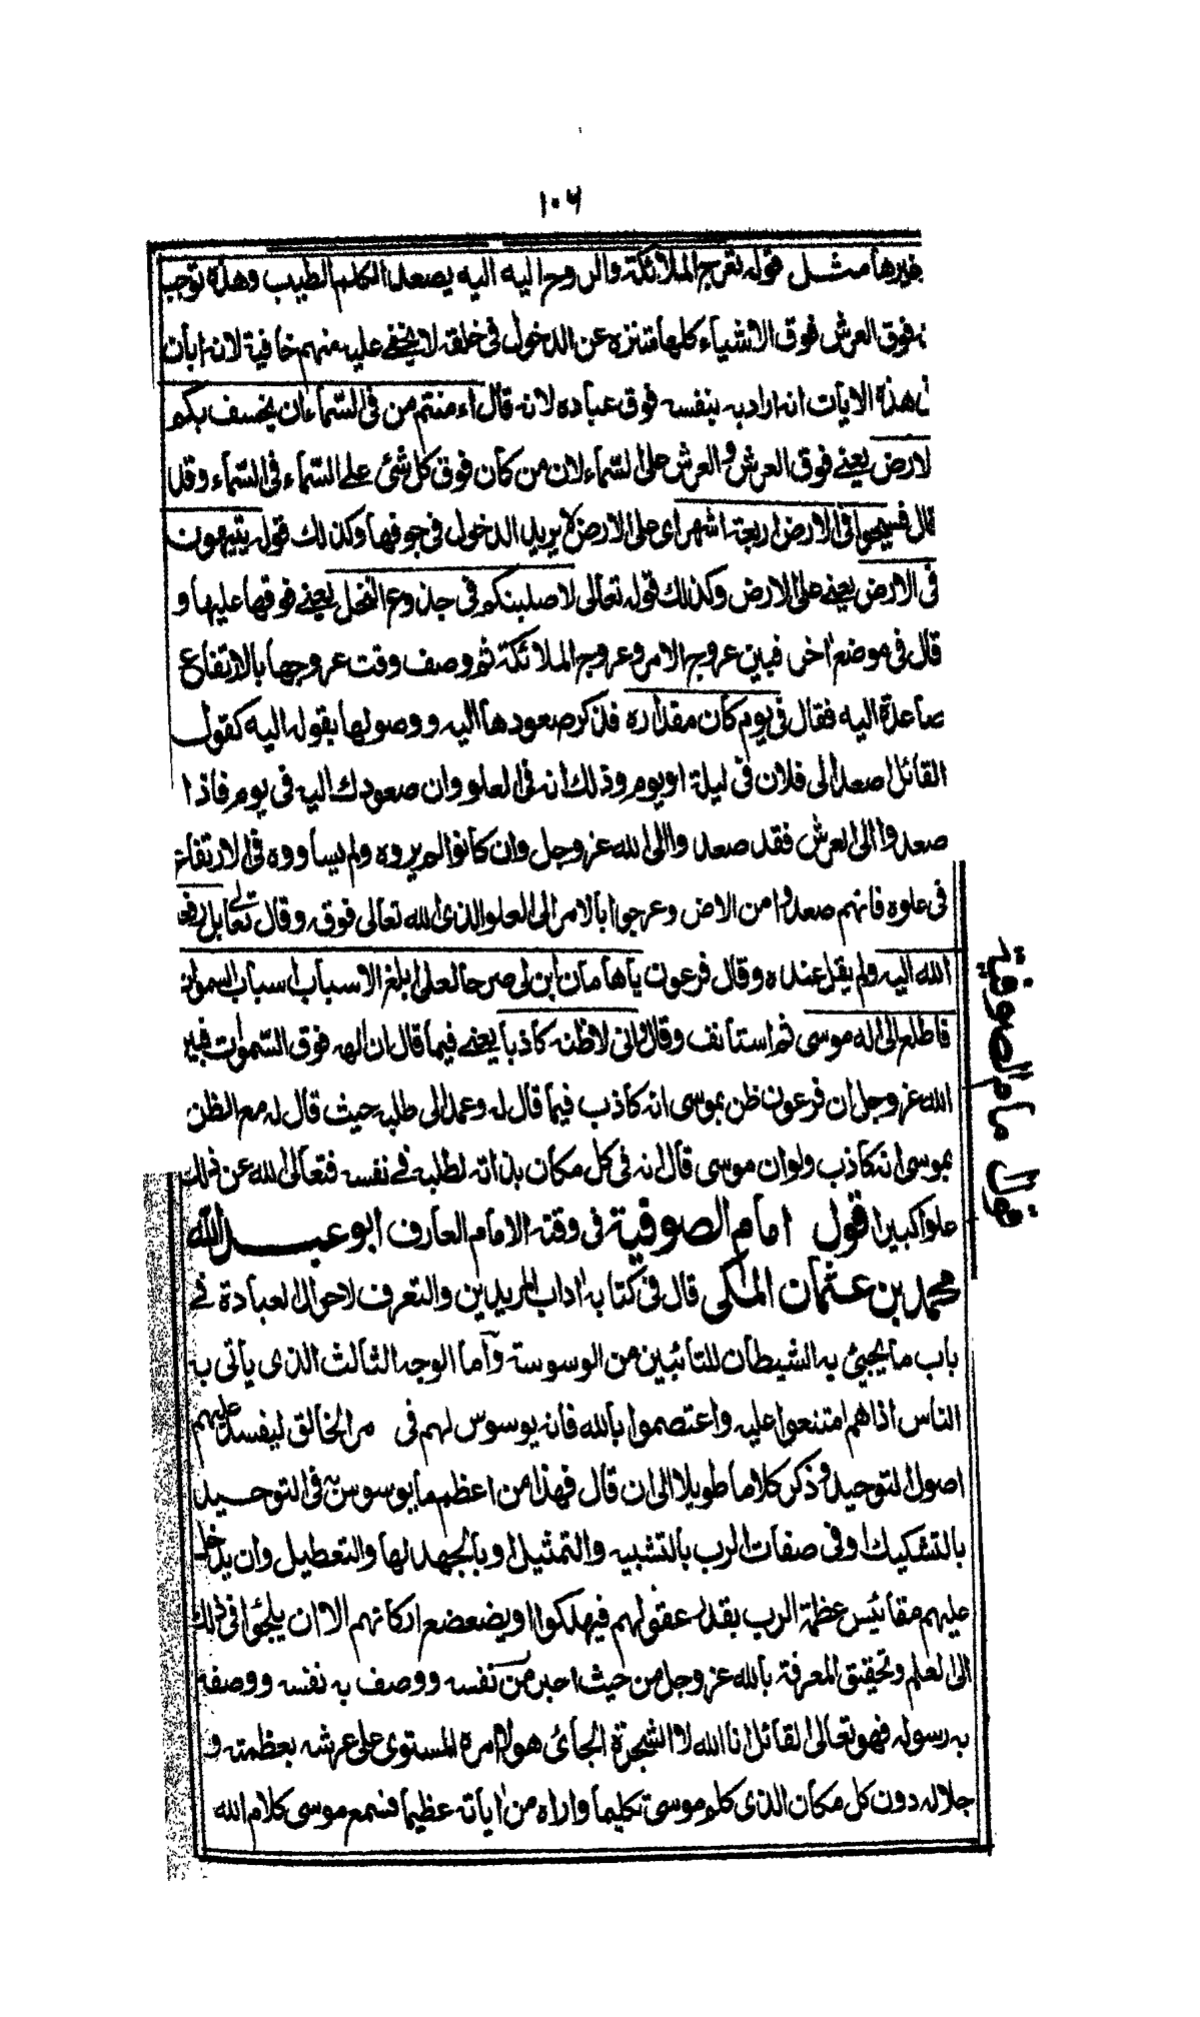 ١٠٦
غيرها مثل قوله تعرج الملائكة والروح اليه اليه يصعد الكلم الطيب وهذه توجب
نه فوق العرش فوق الاشياء كلها متنزه عن الدخول فى خلقه لا يخفى عليه منهم خافية لانه ابان
فى هذه الايات انه اراد به بنفسه فوق عباده لانه قال ءامنتم من فى السماء ان يخسف بكم
لارض يعنى فوق العرش والعرش على السماء لان من كان فوق كل شئ على السماء فى السماء وقد
قال فسيحوا فى الارض اربعة اشهر اى على الارض لا يريد الدخول فى جوفها وكذلك قوله يتيهون
فى الارض يعنى على الارض وكذلك قوله تعالى لاصلبنكم فى جذوع النخل يعنى فوقها عليها و
قال فى موضع اخر فبين عروج الامر وعروج الملائكة ثم وصف وقت عروجها بالارتفاع
صاعدة اليه فقال فى يوم كان مقداره فذكر صعودها اليه ووصولها بقوله اليه كقول
القائل اصعد الى فلان فى ليلة او يوم وذلك انه فى العلو وان صعودك اليه فى يوم فاذا
صعدوا الى العرش فقد صعدوا الى الله عز وجل وان كانوا لم يروه ولم يساووه فى الارتفاع
فى علوه فانهم صعدوا من الارض وعرجوا بالامر الى العلو الذى الله تعالى فوقه وقال تعالى بل رفعه
الله اليه ولم يقل عنده وقال فرعون ياهامان ابن لى صرحا لعلى ابلغ الاسباب اسباب السموات
فاطلع الى اله موسى ثم استانف وقال وانى لاظنه كاذبا يعنى فيما قال ان الهه فوق السموات فبين
الله عز وجل ان فرعون ظن بموسى انه كاذب فيما قال له وعمد الى طلبه حيث قال له مع الظن
بموسى انه كاذب ولو ان موسى قال انه فى كل مكان بذاته لطلبه فى نفسه فتعالى الله عن ذلك
علوا كبيرا قول امام الصوفية فى وقته الامام العارف ابو عبد الله
محمد بن عثمان المكى قال فى كتابه اداب المريدين والتعرف لاحوال العبادة فى
باب ما يجيئ به الشيطان للتائبين من الوسوسة واما الوجه الثالث الذى ياتى به
الناس اذا هم امتنعوا عليه واعتصموا بالله فانه يوسوس لهم فى مر الخالق ليفسد عليهم
اصول التوحيد وذكر كلاما طويلا الى ان قال فهذا من اعظم ما يوسوس به فى التوحيد
بالتشكيك او فى صفات الرب بالتشبيه والتمثيل او بالجهد لها والتعطيل وان يدخل
عليهم مقائيس عظمة الرب بقدر عقولهم فيهلكوا او يضعضع اركانهم الا ان يلجؤا فى ذلك
الى العلم وتحقيق المعرفة بالله عز وجل من حيث اخبر عن نفسه ووصف به نفسه ووصفه
به رسوله فهو تعالى القائل انا الله لا الشجرة الجائ هو لا امره المستوى على عرشه بعظمته و
جلاله دون كل مكان الذى كلم موسى تكليما واراه من اياته عظيما فسمع موسى كلام الله
قول امام الصوفية